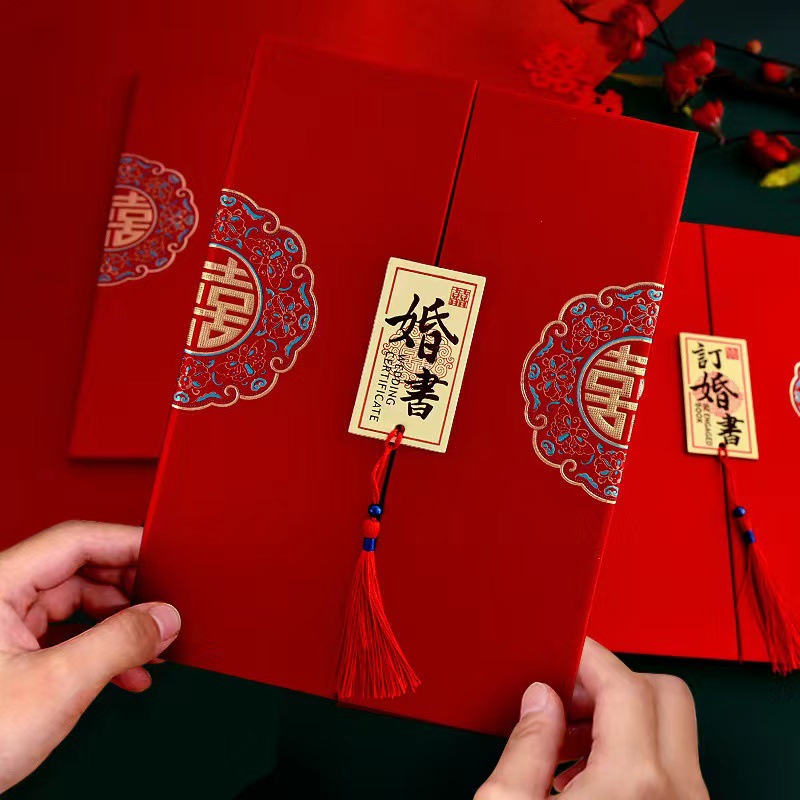 婚書
WEDDING
CERTIFICATE
訂婚書
BE ENGAGED
BOOK
囍
囍
囍